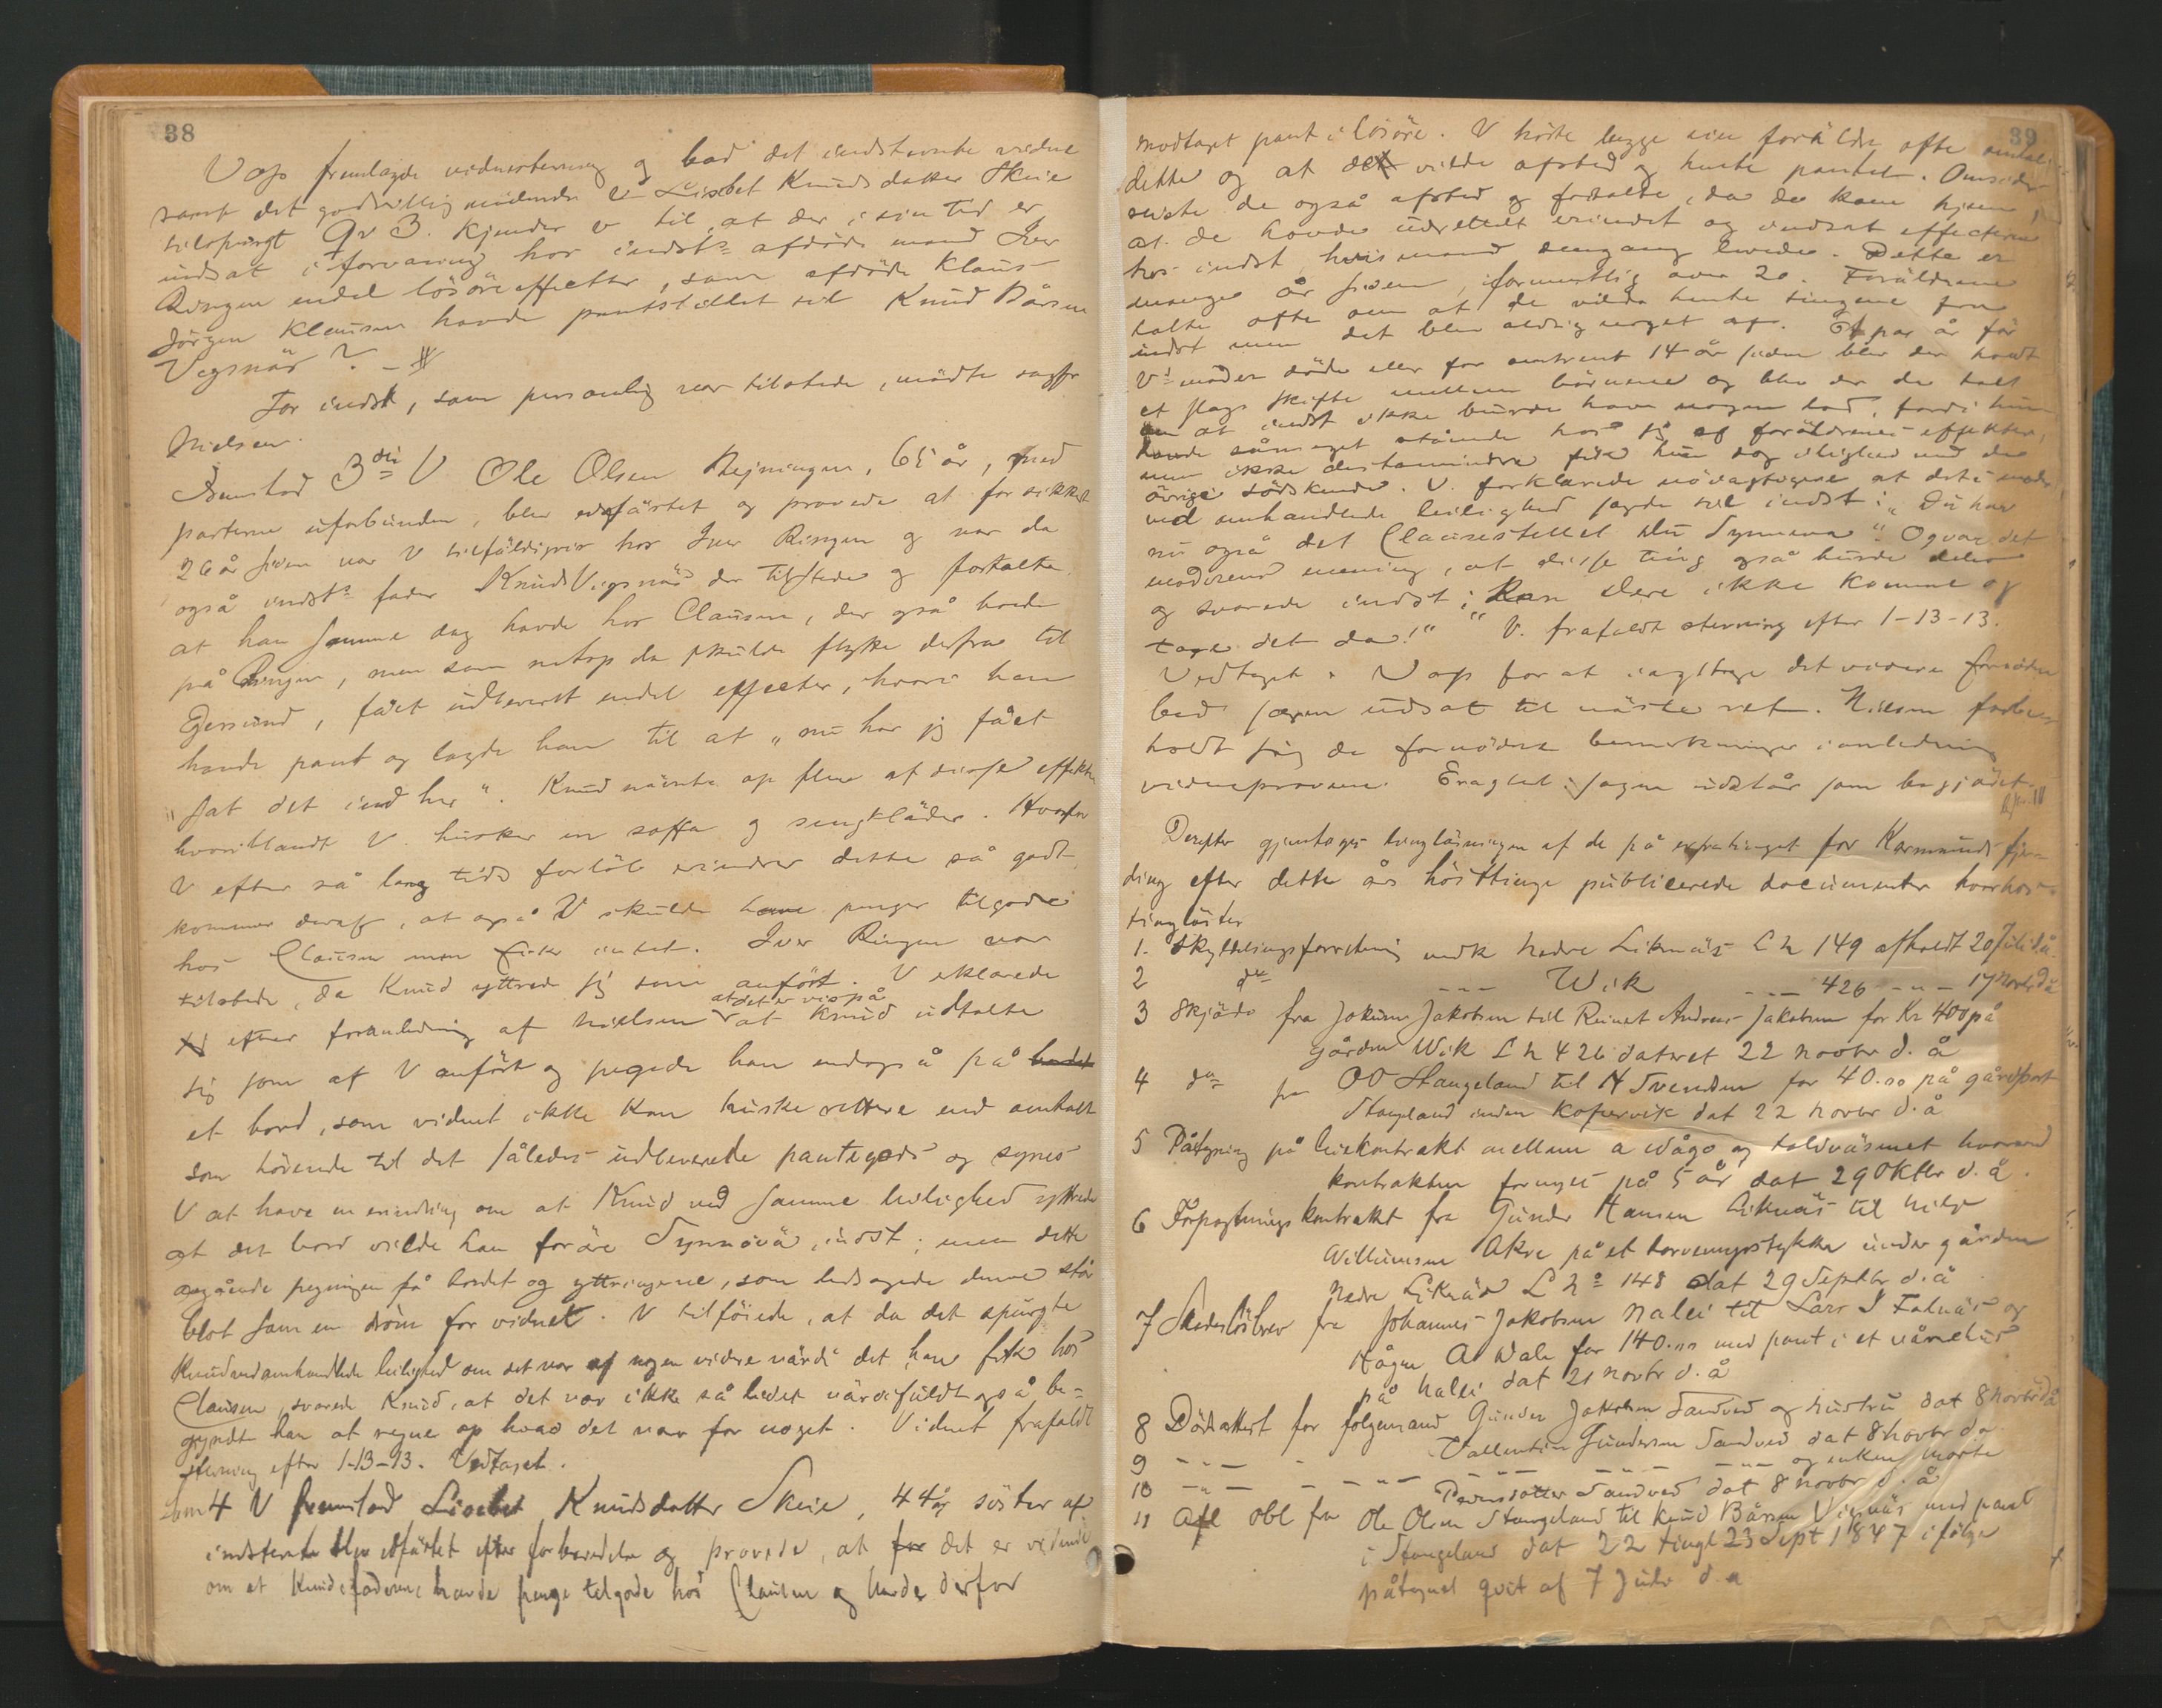 38
V op fremlagde vidnestevning og bad det indstevnte vidne
samt det godvillig mødende v Lisbet Knudsdatter Skeie
tilspurgt Qv 3. Kjender v til, at der i sin tid er
indsat i forvaring hos indsts afdøde mand Iver
Ringen endel løsøreeffecter, som afdøde Klaus
Jörgen Klausen havde pantstillet til Knud Bårsen
Vigsnäs? -
For indst, som personlig var tilstede, mødte sagfr
Nielsen.
Fremstod 3die V Ole Olsen Rejningen, 65 år, med
parterne uforbunden, blev edfästet og provede at for sikkert
26 år siden var V tilfäldigvis hos Iver Ringen og var da
også indsts fader Knud Vigsnäs der tilstede og fortalte
at han samme dag havde hos Clausen, der også boede
på Ringen, men som netop da skulde flytte derfra til
Egersund, fået udleveret endel effecter, hvori han
havde pant og lagde han til at „nu har jeg fået
sat det ind her“. Knud nävnte op flere af disse effekter
hvoriblandt V. husker en soffa og sengkläder. Hvorfor
V efter så lang tids forlöb erindrer dette så godt
kommer deraf, at også V skulde have penger tilgode
hos Clausen men fik intet. Iver Ringen var
tilstede, da Knud yttrede sig som anført. V erklærede
at det er vis på
efter foranledning af Nielsen at Knud udtalte
sig som af V anført og pegede han endog så på bordet
et bord, som vidnet ikke kan huske rettere end omtalt
som hörende til det således udleverede pantegods og synes
V at have en erindring om at Knud ved samme leilighed yttrede
at det bord vilde han foräre Synnøvä, indst; men dette
angående pegningen på bordet og yttringerne, som ledsagede denne står
blot som en dröm for vidnet. V tilføiede, at da det spurgte
Knud ved omhandlede leilighed om det var af nogen videre värdi det han fik hos
Clausen, svarede Knud, at det var ikke så lidet värdifuldt også be-
gyndt han at regne op hvad det var for noget. Vidnet frafaldt
stevning efter 1-13-13. Vedtaget.
Som 4 V fremstod Lisebet Knudsdatter Skeie, 44 år söster af
indstevnte blev edfästet efter forberedelse og provede, at for det er vidende
om at Knud faderen havde penge tilgode hos Clausen og havde derfor
39
modtaget pant i løsöre. V hørte begge sine foräldre ofte omtale
dette og at det vilde afsted og hente pantet. Omsider
reiste de også afsted og fortalte, da de kom hjem,
at de havde udrettet erindet og indsat effecterne
hos indst, hvis mand dengang levede. Dette er
mange år siden, formentlig over 20. Foräldrene
talte ofte om at de vilde hente tingene fra
indst men det blev aldrig noget af. Et par år før
Vs moder døde eller for omtrent 14 år siden blev der holdt
et slags skifte mellem börnene og blev der da talt
om at indst ikke burde have nogen lod, fordi hun
havde såmeget stående hos sig af foräldrenes effekter,
men ikke destomindre fik hun dog lighed med de
övrige södskende. V. forklarede nöiagtigere at det i moder
ved omhandlede leilighed sagde til indst: „Du har
nu også det Clausestellet du Synneva“. Og var det
moderens mening, at disse ting også burde deles
og svarede indst: „Kan dere ikke komme og
tage det da!“ V. frafaldt stevning efter 1-13-13.
Vedtaget. V op for at iagttage det videre fornødne
bad sagen udsat til näste ret. Nielsen forbe-
holdt sig de fornödne bemerkninger i anledning
vidneprovene. Eragtet: sagen udstår som begjäret.
Derefter gjentoges tinglåsningen af de på extratinget for Karmsunds fjer-
ding efter dette års hösttinge publicerede documenter hvorhos
tinglåstes
1. Skyldelingsforretning vedk Nedre Liknäs L N 149 afholdt 20 Juli d.å.
2 do --- Wik --- 426 -"- 17 Novbr d.å
3 Skjöde fra Jokum Jakobsen til Reinert Andreas Jakobsen for Kr 400 på
gården Wik L N 426 dateret 22 novbr d. å
4 do fra O O Stangeland til H Svendsen for 40.00 på gårdpart
Stangeland inden Kopervik dat 22 Novbr d.å
5 Påtegning på leiekontrakt mellem A Vågø og toldväsenet hvorved
kontrakten fornyes på 5 år dat 29 Oktbr d. å.
6 Forpagtningskontrakt fra Gunder Hansen Liknäs til Helge
Williamsen Åkre på et torvemyrstykke under gården
Nedre Liknäs L No 148 dat 29 Septbr d.å
7 Skadeslösbrev fra Johannes Jakobsen Nalei til Lars J Falnäs og
Hågen A Dale for 140.00 med pant i et våningshus
på Nalei dat 21 Novbr d. å
8 Dödsattest for folgemand Gunder Jakobsen Sandved og hustru dat 8 Novbr d.å
9 -"- - Vallentin Gundersen Sandved dat 8 Novbr d.å
10 -"- - -"- -"- og enken Marte
Pedersdatter Sandved dat 8 Novbr d. å
11 Afl obl fra Ole Olsen Stangeland til Knud Båren Vigsnäs med pant
i Stangeland dat 22 tingl 23 Sept 1847 ifölge
påtegnet qvit af 7 Juli d. a